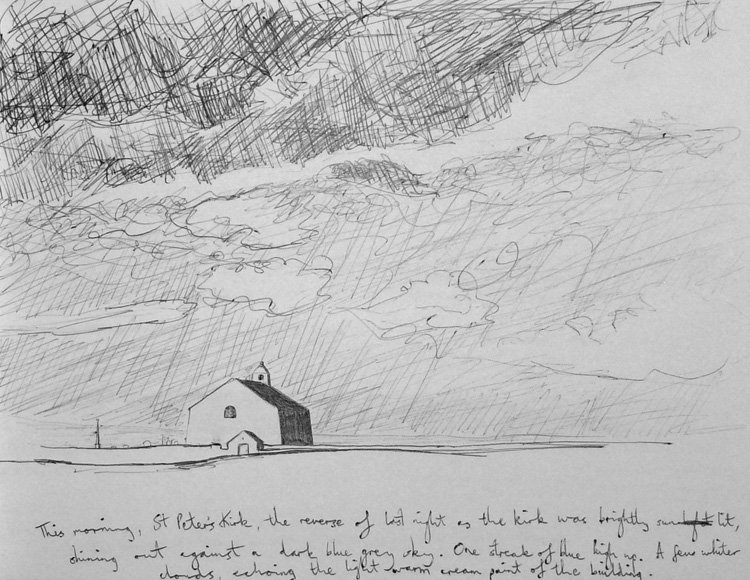 This morning, St Peter's Kirk, the reverse of last night as the kirk was brightly lit,
shining out against a dark blue grey sky. One streak of blue high up. A few whiter
clouds, echoing the light warm cream paint of the building.